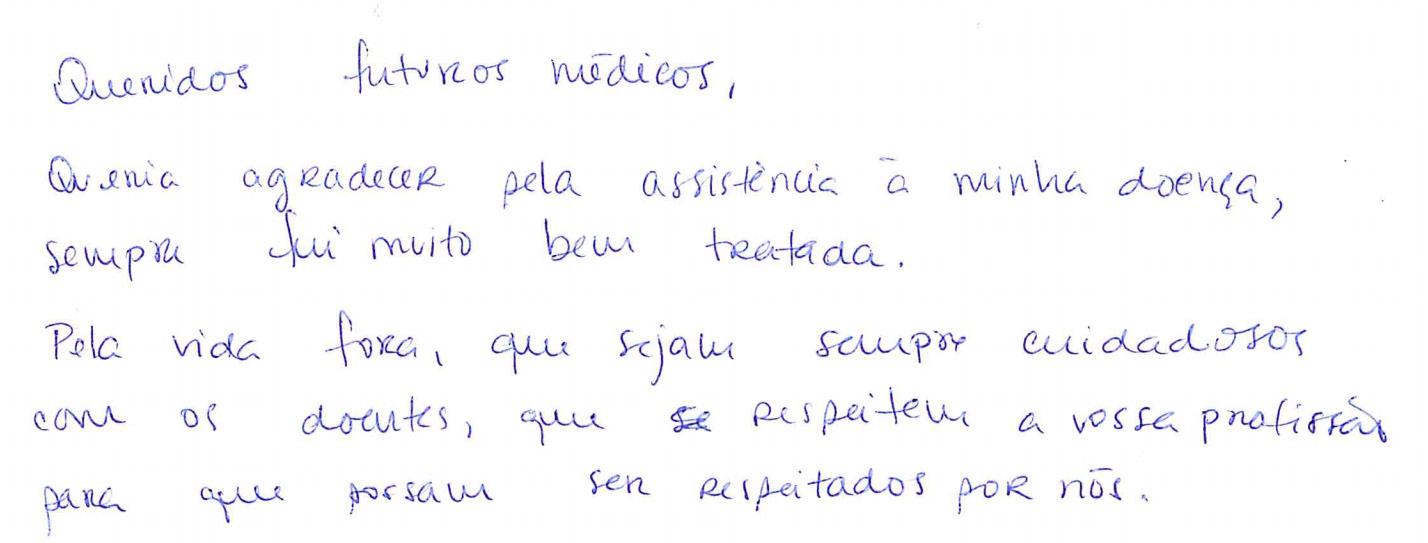 Queridos futuros médicos,
Queria agradecer pela assistência à minha doença,
sempre fui muito bem tratada.
Pela vida fora, que sejam sempre cuidadosos
com os doentes, que respeitem a vossa profissão
para que possam ser respeitados por nós.